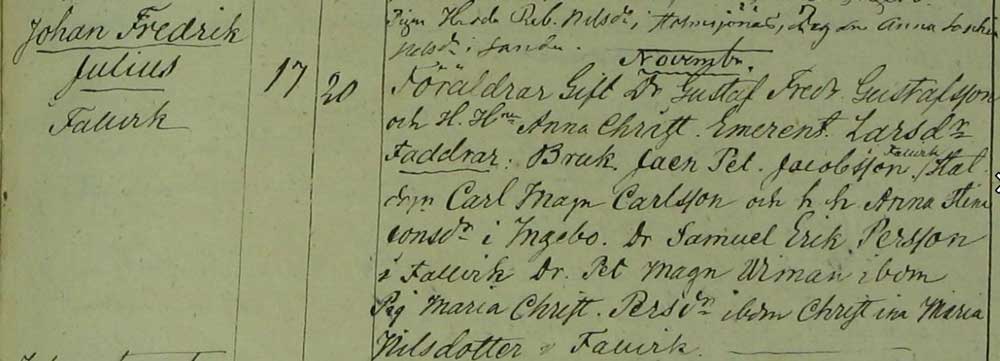 Johan Fredrik
Julius
Fallvik
17 20
Pigan Hedda Reb. Nilsdr i Drg Anna
i Sanda.
Novembr.
Föräldrar Gift Dr Gustaf Fredr. Gustafsson
och H. Hru Anna Christ. Emerent. Larsdr
Faddrar: Bruk. Jaen Pet. Jacobsson Fallvik
Carl Magn Carlsson och h h Anna Stina
i Ingebo. Dr Samuel Erik Persson
i Fallvik Dr. Pet Magn Urman ibdm
Pig Maria Christ. Persdr ibdm Christina Maria
Nilsdotter Fallvik.